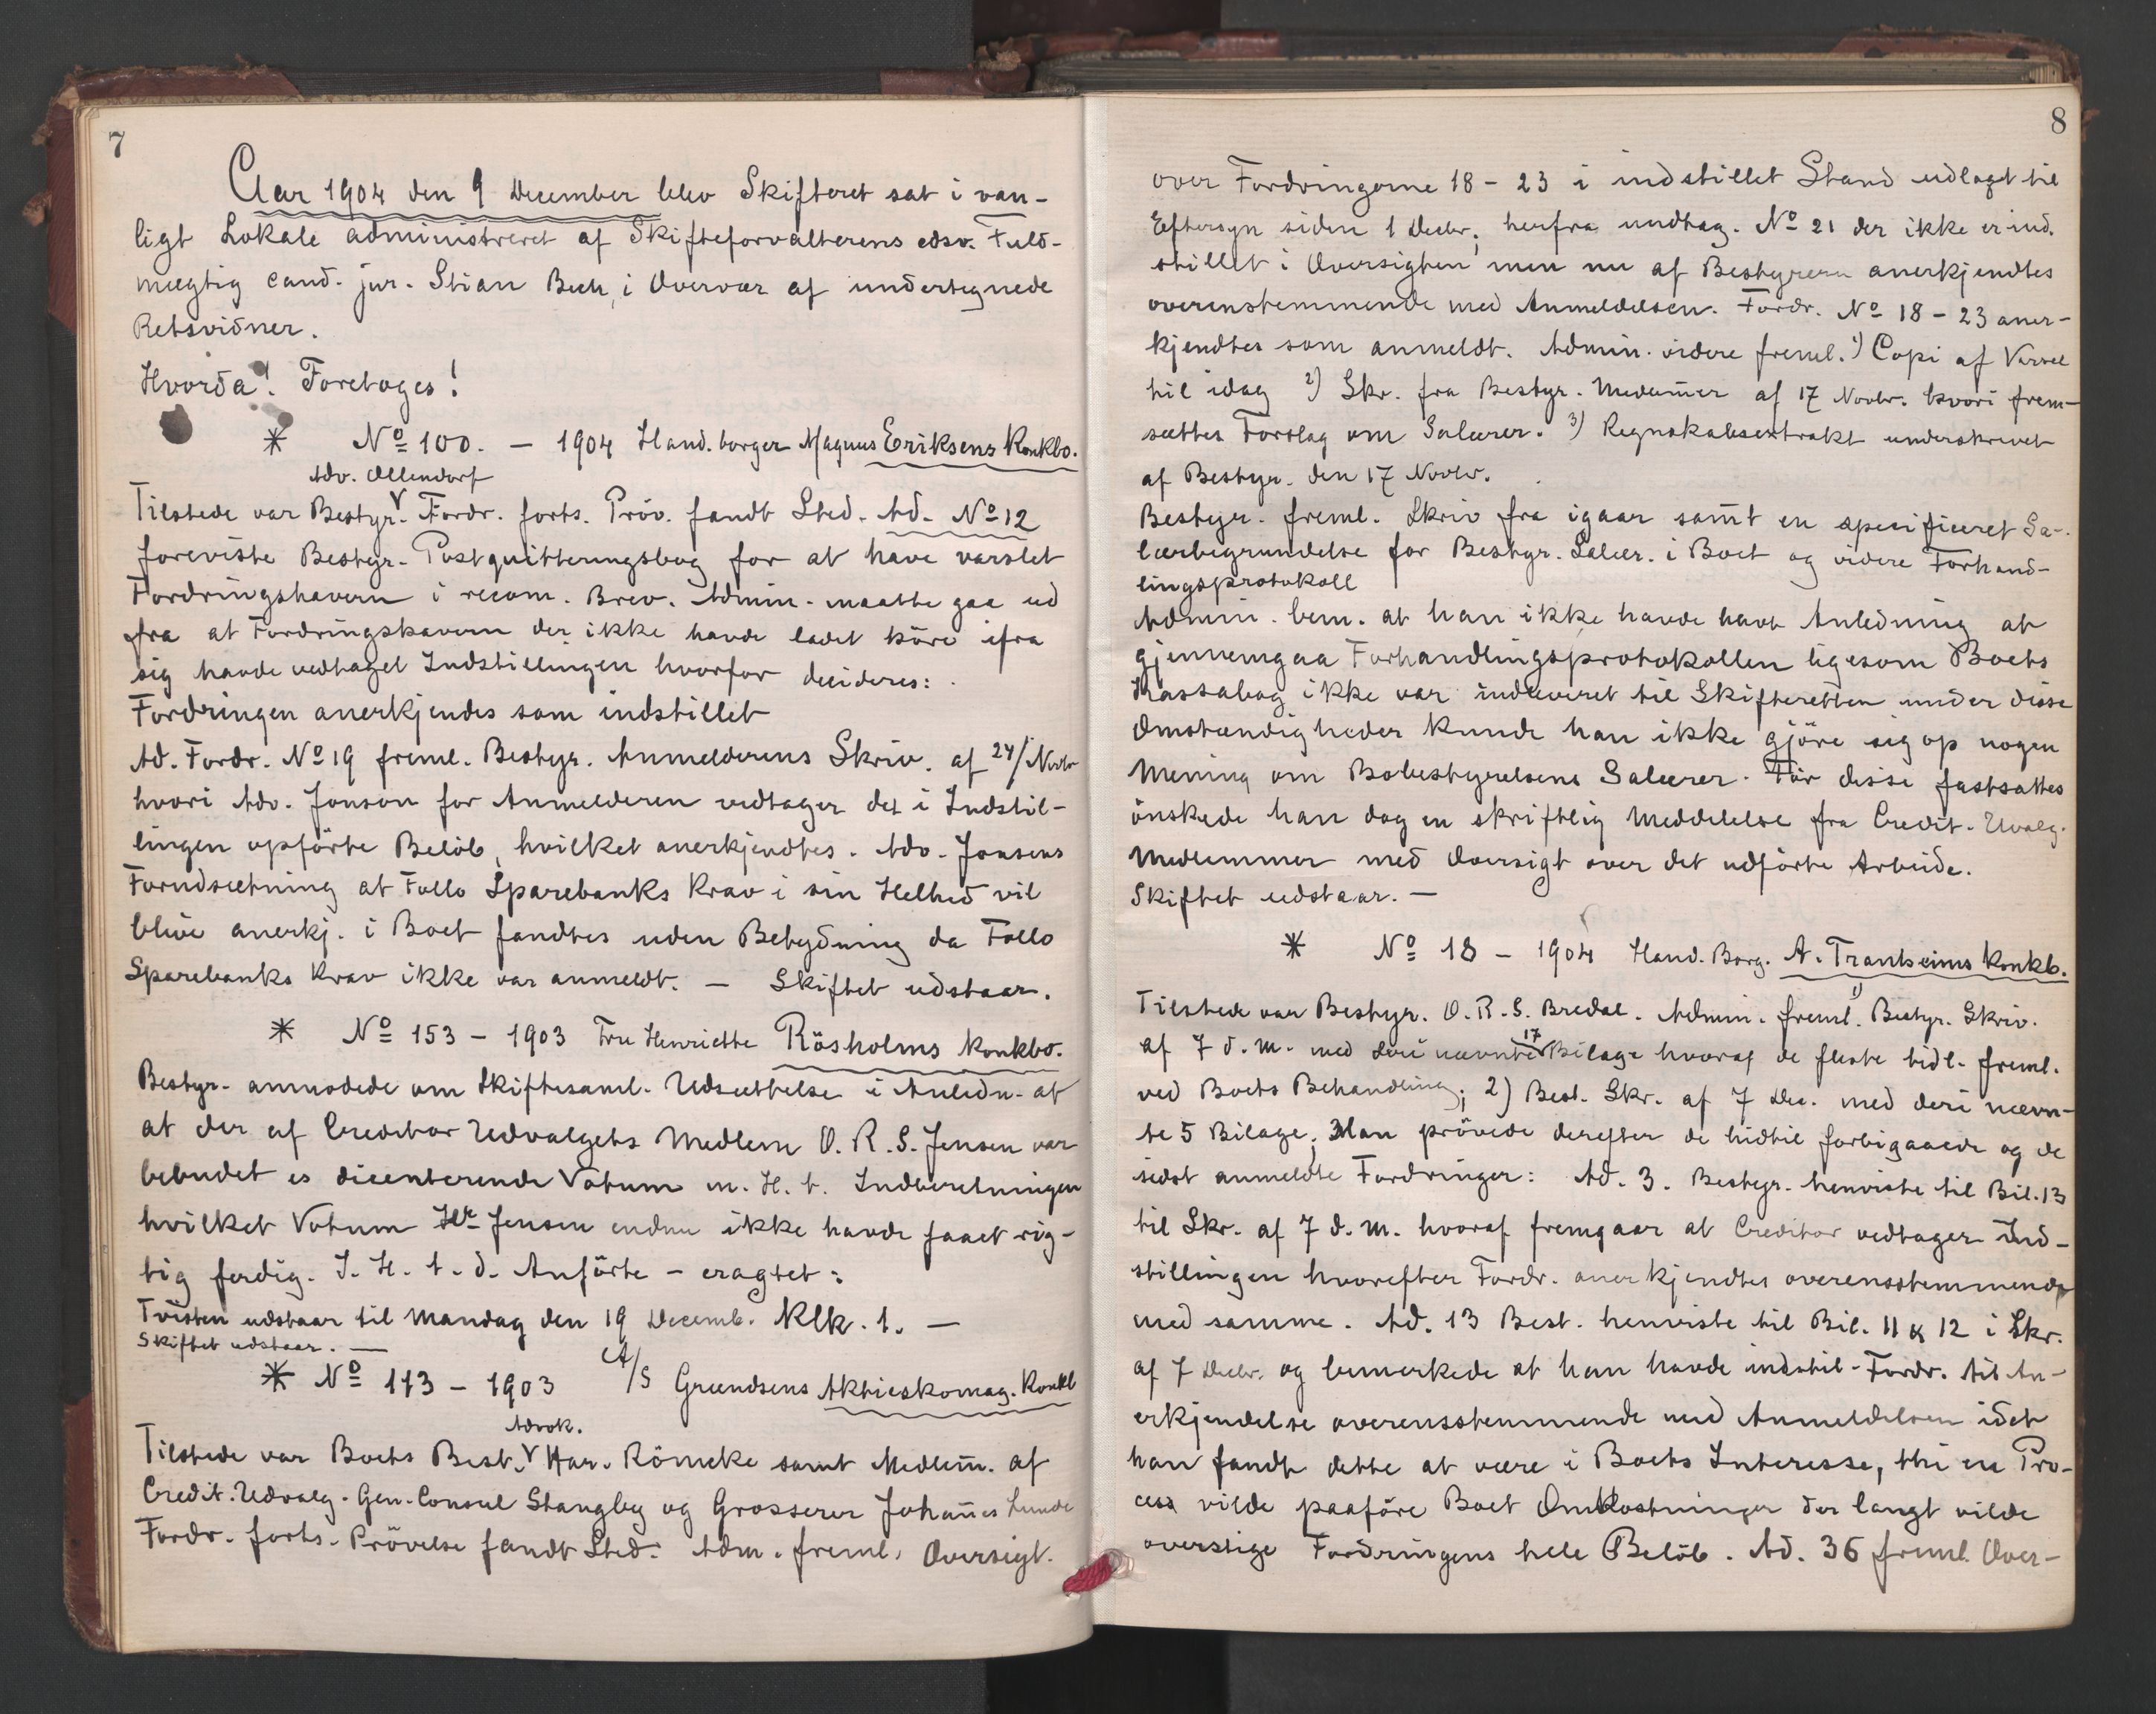 7
Aar 1904 den 9 December blev Skifteret sat i van-
ligt Lokale administreret af Skifteforvalterens edsv. Fuld-
mægtig cand. jur. Stian Bech, i Overvær af undertegnede
Retsvidner.
Hvorda! Foretoges!
* No 100. - 1904 Hand. borger Magnus Eriksens Konkbo.
Adv. Ollendorf
Tilstede var Bestyr. Fordr. forts. Pröv. fandt Sted. Ad. No 12
foreviste Bestyr. Postquitteringsbog for at have varslet
Fordringshavern i recom. Brev. Admin. maatte gaa ud
fra at Fordringshavern der ikke havde ladet höre ifra
sig havde vedtaget Indstillingen hvorfor decideres:
Fordringen anerkjendes som indstillet
Ad. Fordr. No 19 freml. Bestyr. Anmelderens Skriv. af 24/Novbr
hvori Adv. Jonson for Anmelderen vedtager det i Indstil-
lingen opförte Belöb, hvilket anerkjendtes. Adv. Jonsens
Forudsætning at Follo Sparebanks Krav i sin Helhed vil
blive anerkj. i Boet fandtes uden Betydning da Follo
Sparebanks Krav ikke var anmeldt. - Skiftet udstaar.
* No 153 - 1903 Fru Henriette Rösholms Konkbo.
Bestyr. anmodede om Skiftesaml. Udsættelse i Anledn. af
at der af Creditor Udvalgets Medlem O. R. S. Jensen var
bebudet es dicenterende Votum m. H. t. Indberetningen
hvilket Votum Hr Jensen endnu ikke havde faaet rig-
tig ferdig. I. H. t. d. Anförte - eragtet:
Tvisten udstaar til Mandag den 19 Decemb. Klk. 1. -
Skiftet udstaar. -
* No 113 - 1903 A/S Grændsens Aktieskomag. Konkb
Advok.
Tilstede var Boets Best. Har. Römcke samt Medlem. af
Credit. Udvalg. Gen. Consul Stangby og Grosserer Johannes Lunde
Fordr. forts. Prövelse fandt Sted. Adm. freml. Oversigt.
8
over Fordringerne 18 - 23 i indstillet Stand udlagt til
Eftersyn siden 1 Decbr; herfra undtag. No 21 der ikke er ind.
stillet i Oversigten men nu af Bestyreren anerkjendtes
overenstemmende med Anmeldelsen. Fordr. No 18 - 23 aner-
kjendtes som anmeldt. Admin. videre freml. 1) Copi af Varsel
til idag 2) Skr. fra Bestyr. Medlemmer af 17 Novbr. hvori frem-
sættes Forslag om Salærer. 3) Regnskabsextrakt underskrevet
af Bestyr. den 17 Novbr.
Bestyr. freml. Skriv fra igaar samt en specificeret Sa-
lærbegrundelse for Bestyr. Salær. i Boet og videre Forhand-
lingsprotokoll
Admin. bem. at han ikke havde havt Anledning at
gjennemgaa Forhandlingsprotokollen ligesom Boets
Kassabog ikke var indleveret til Skifteretten under disse
Omstændigheder kunde han ikke gjöre sig op nogen
Mening om Bobestyrelsens Salærer. För disse fastsattes
önskede han dog en skriftlig Meddelelse fra Credit. Uvalg.
Medlemmer med Oversigt over det udförte Arbeide.
Skiftet udstaar. -
* No 18 - 1904 Hand. Borg. A. Tranheims Konkb.
Tilstede var Bestyr. O. R. S. Bredal. Admin. freml. 1) Bestyr. Skriv.
af 7 d. M. med deri nævnte 17 Bilage hvoraf de fleste tidl. freml.
ved Boets Behandling; 2) Best. Skr. af 7 Dec. med deri nævn-
te 5 Bilage. Man prövede derefter de hidtil forbigaaede og de
sidst anmeldte Fordringer: Ad. 3. Bestyr. henviste til Bil. 13
til Skr. af 7 d. M. hvoraf fremgaar at Creditor vedtager Ind-
stillingen hvorefter Fordr. anerkjendtes overensstemmende
med samme. Ad. 13 Best. henviste til Bil. 11 & 12 i Skr.
af 7 Decbr. og bemerkede at han havde indstil. Fordr. til An-
erkjendelse overensstemmende med Anmeldelsen idet
han fandt dette at være i Boets Interesse, thi en Pro-
cess vilde paaföre Boet Omkostninger der langt vilde
overstige Fordringens hele Belöb. Ad. 36 freml. Over-